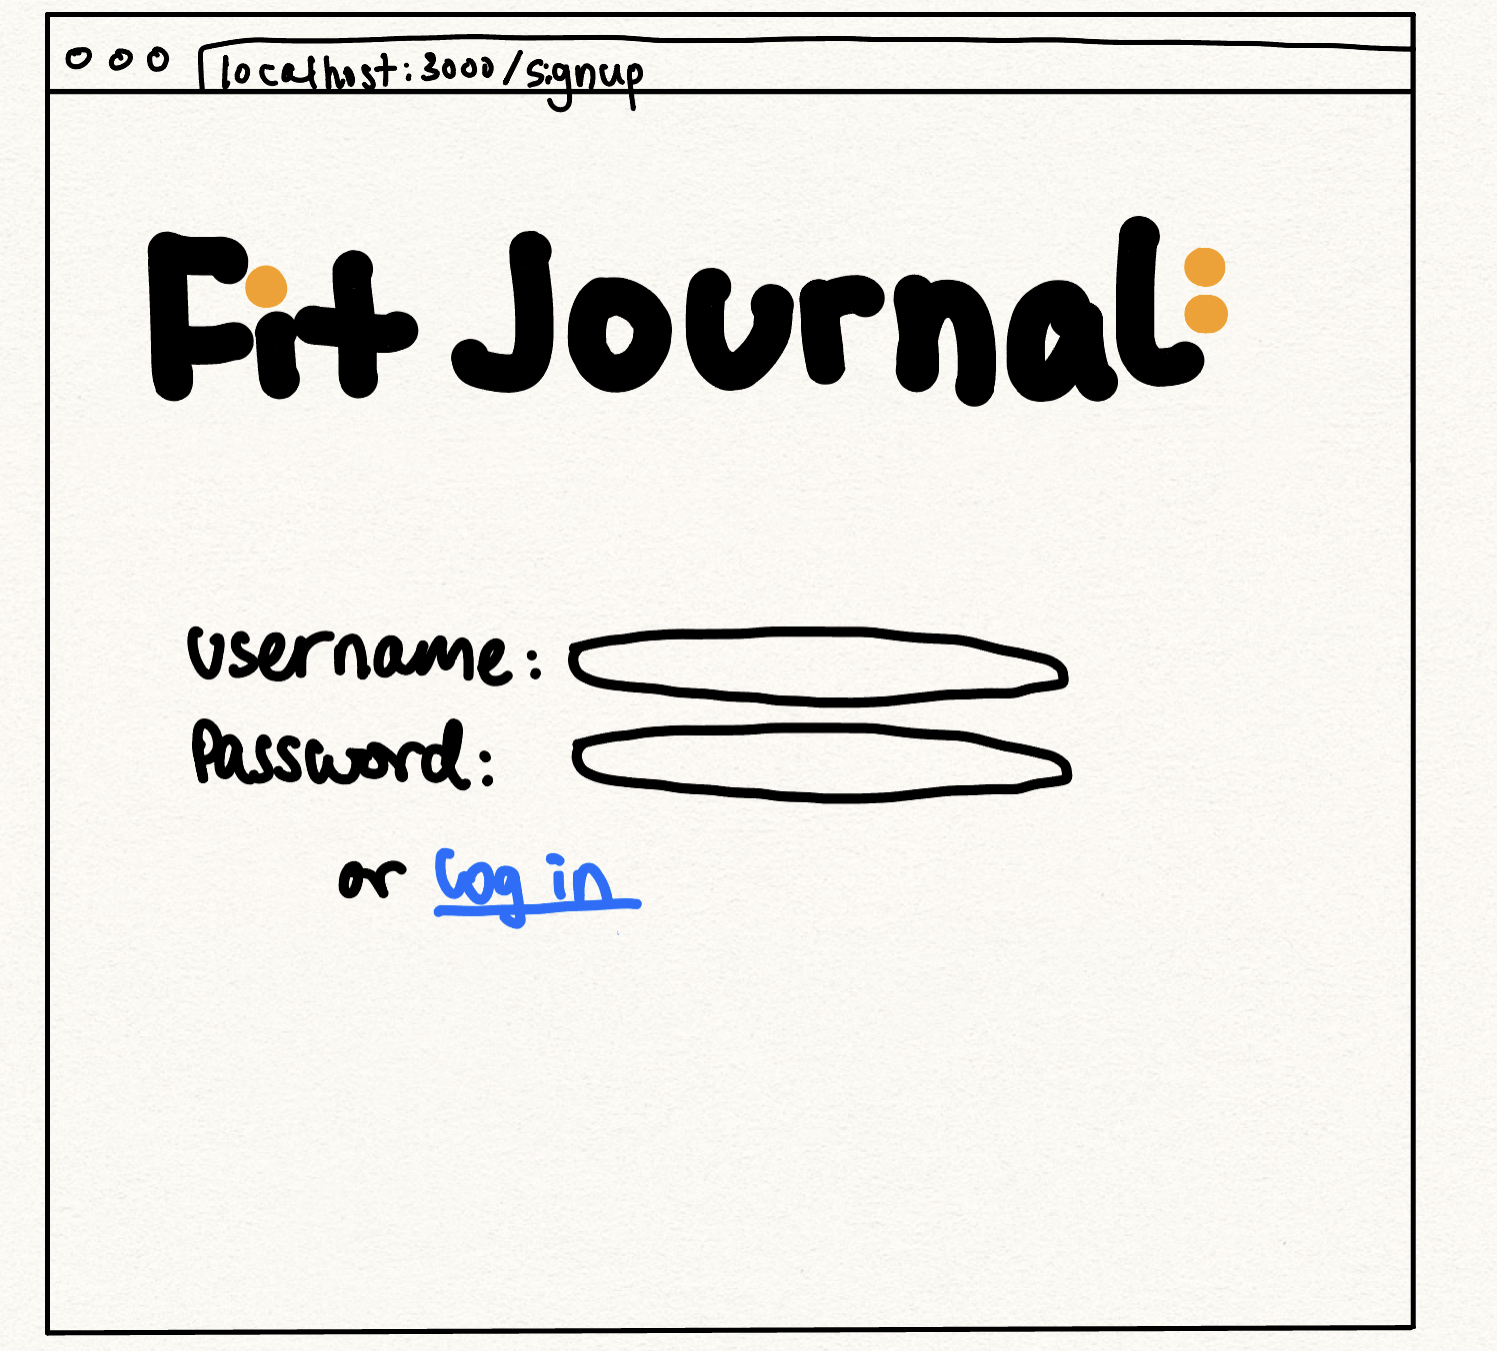 localhost:3000/signup
Fit Journal:
Username:
Password:
or Log in